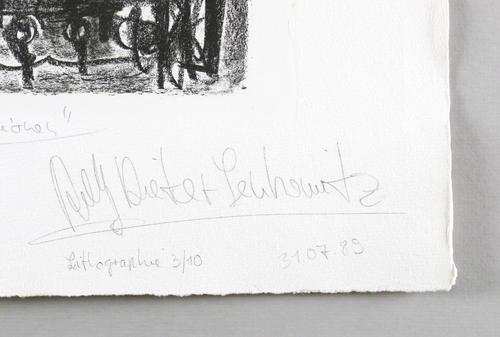 Rolf Dieter Lenkowitz
Lithographie 3/10
31.07.89